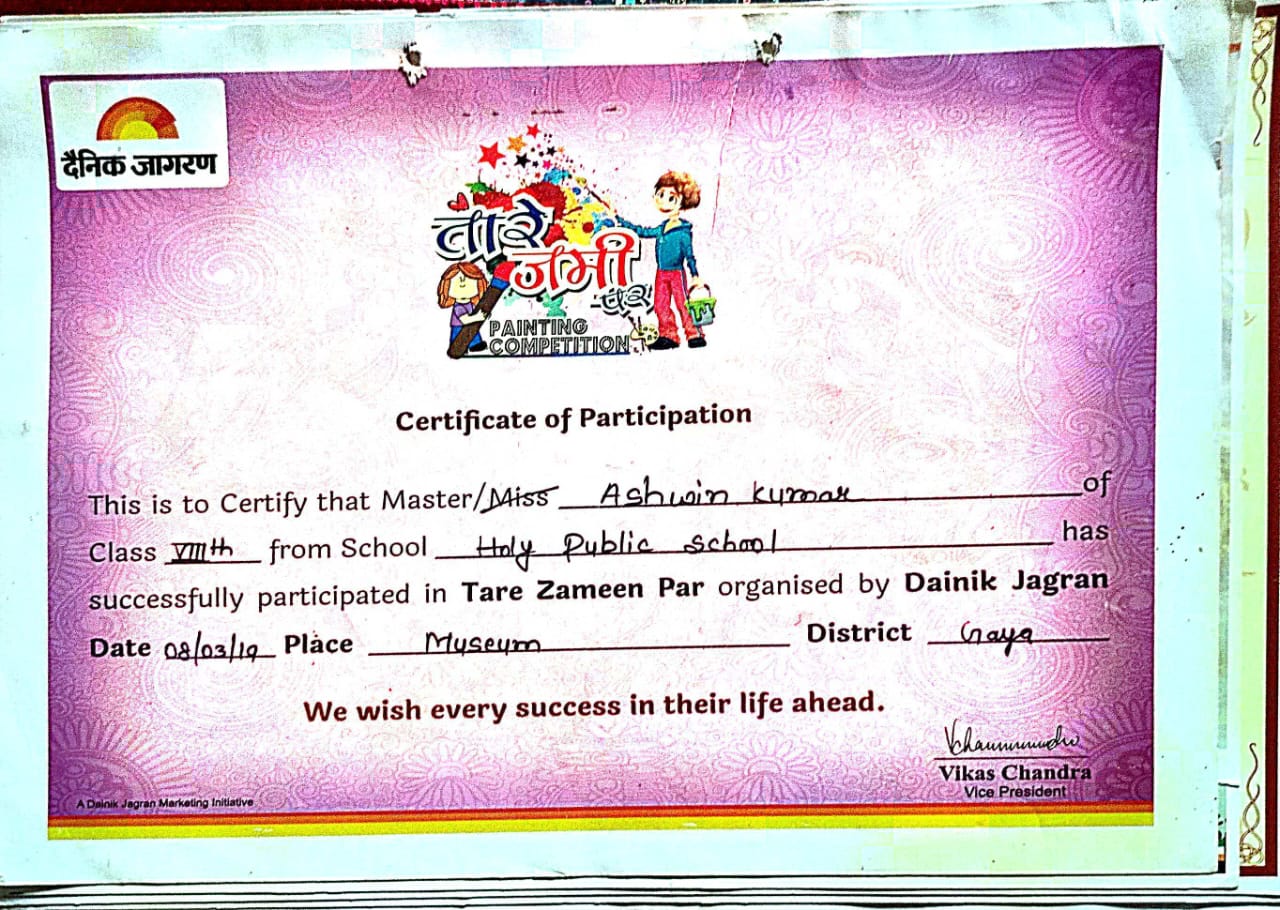 दैनिक जागरण
तारे
जमीं
पर
PAINTING
COMPETITION
Certificate of Participation
This is to Certify that Master/Miss Ashwin Kumar of
Class VIIIth from School Holy Public School has
successfully participated in Tare Zameen Par organised by Dainik Jagran
Date 08/03/19 Place Museum District Gaya
We wish every success in their life ahead.
Vikas Chandra
Vice President
A Dainik Jagran Marketing Initiative